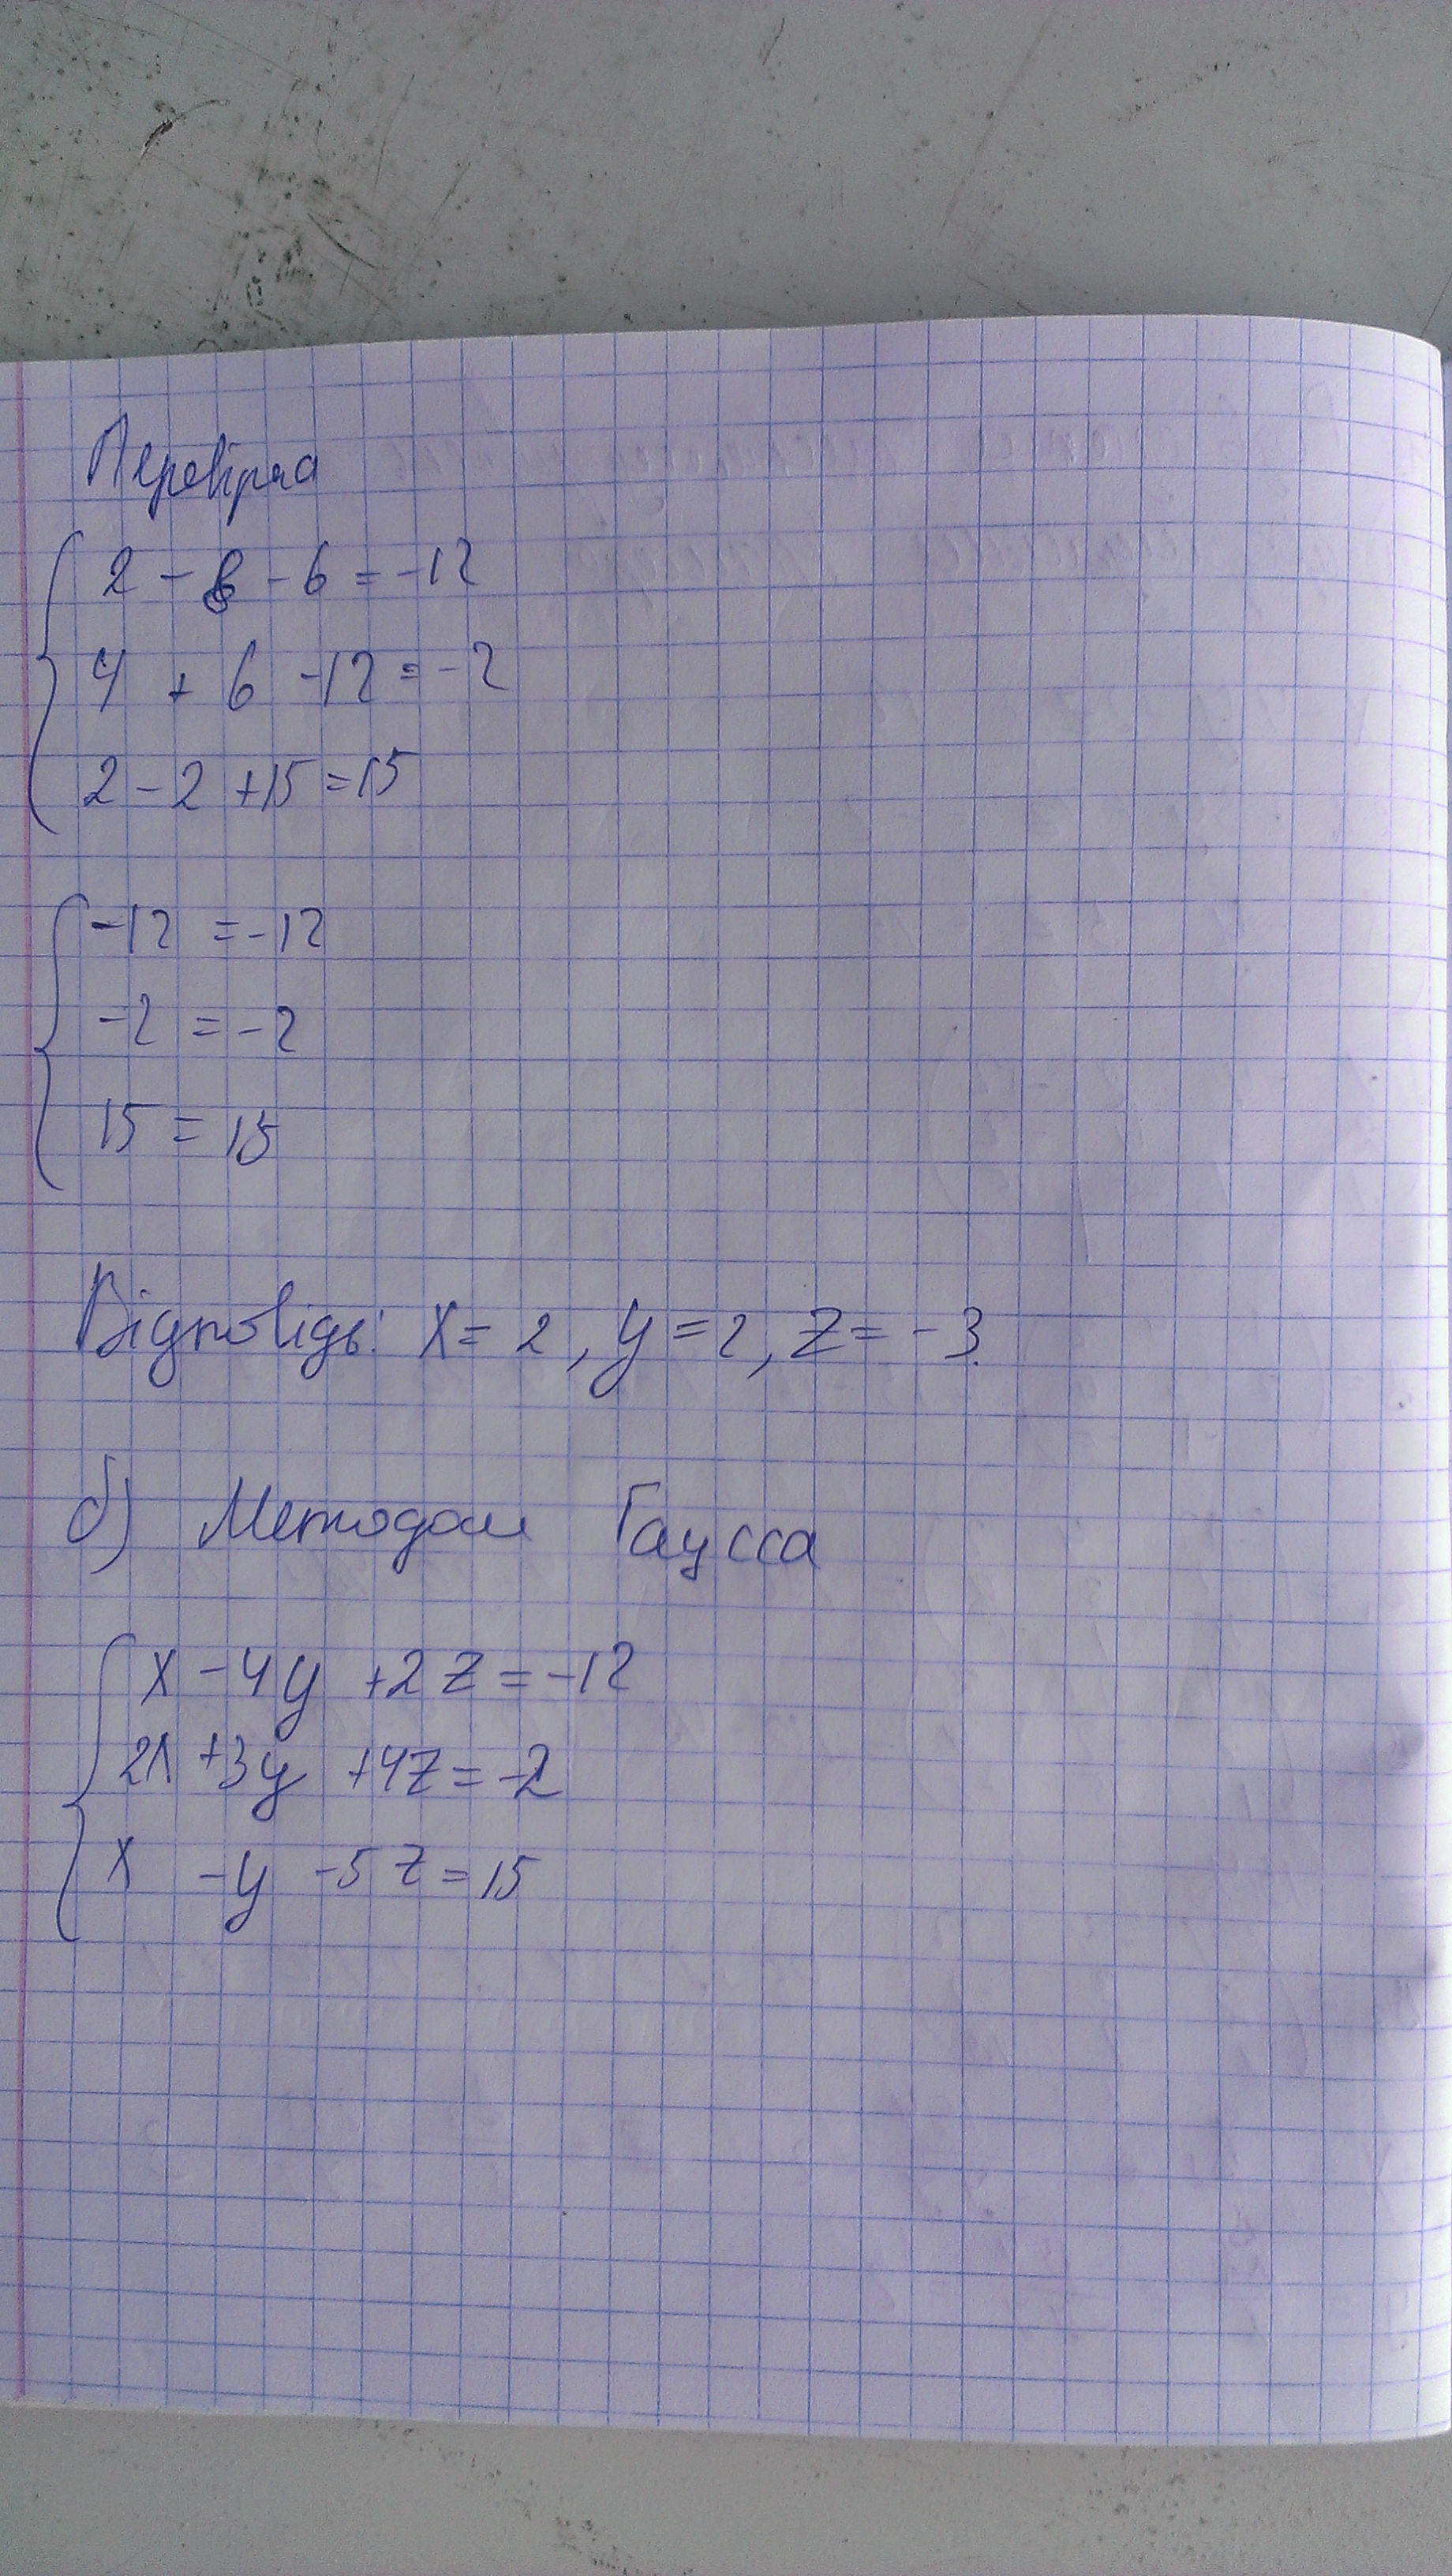 Перевірка
2 - 8 - 6 = -12
4 + 6 - 12 = -2
2 - 2 + 15 = 15
-12 = -12
-2 = -2
15 = 15
Відповідь: x = 2, y = 2, z = -3.
б) Методом Гаусса
x - 4y + 2z = -12
2x + 3y + 4z = -2
x - y - 5z = 15